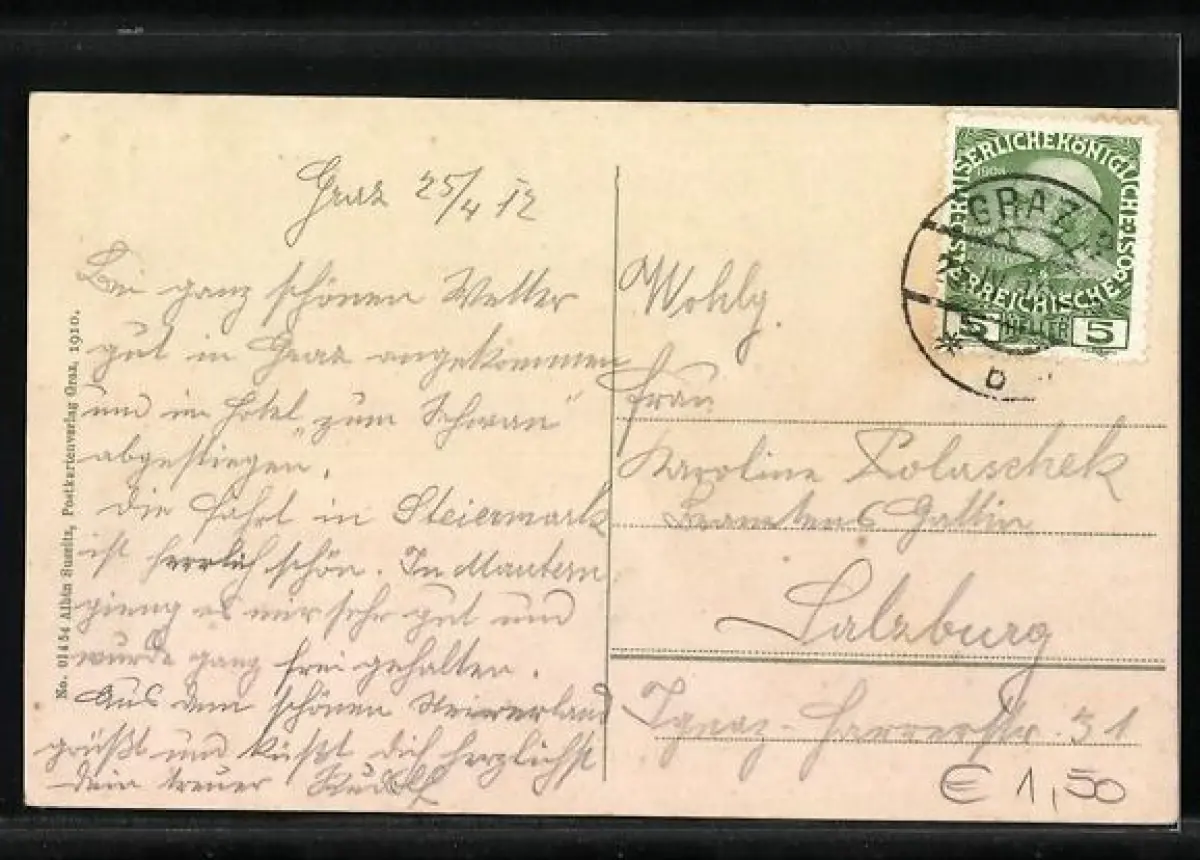 Graz 25/4 12
Bei ganz schönen Wetter
gut in Graz angekommen
und im Hotel "zum Schwan"
abgestiegen.
Die Fahrt in Steiermark
ist herrlich schön. In Mautern
gieng es mir sehr gut und
wurde ganz frei gehalten.
Aus dem schönen Steirerland
grüßt und küßt dich herzlichst
dein treuer Rudolf
Wohlg.
Frau
Karoline Polaschek
Beamtens Gattin
Salzburg
Ignaz-Harrerstr. 31
€ 1,50
No. 01454 Albin Sussitz, Postkartenverlag Graz, 1910.
KAISERLICHEKÖNIGLICHE ÖSTERREICHISCHE POST
5 HELLER 5
1908
GRAZ